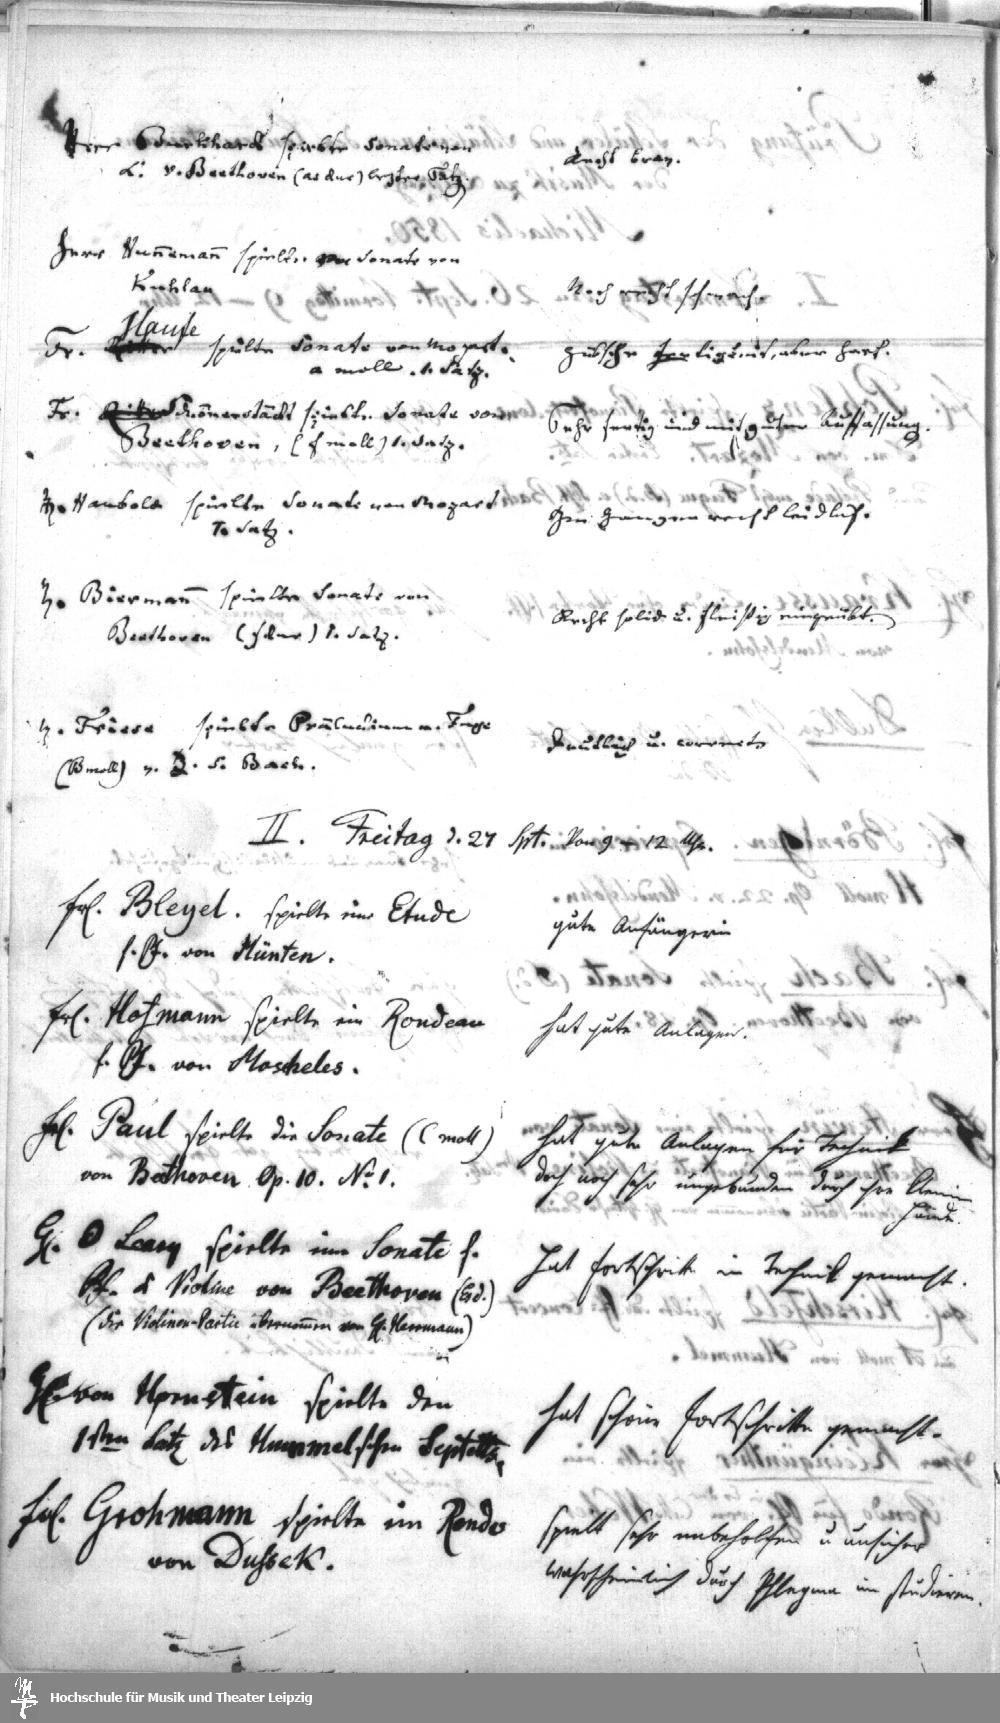 Herr Burkhardt spielte Sonate von
L. v. Beethoven (as dur) letzter Satz.
Recht brav.
Herr Hunnemann spielte Sonate von
Kuhlau
Noch recht schwach.
Fr. Haufe spielte Sonate von Mozart.
a moll. 1. Satz.
Hübsche Fertigkeit, aber hart.
Fr. Sonnerstädt spielte Sonate von
Beethoven, (f moll) 1. Satz.
Sehr fertig und mit guter Auffassung.
H. Haubold spielte Sonate von Mozart
1. Satz.
Im Ganzen recht leidlich.
H. Biermann spielte Sonate von
Beethoven (f dur) 1. Satz.
Recht solid u. fleißig eingeübt.
H. Friese spielte Präludium u. Fuge
(B moll) v. J. S. Bach.
Deutlich u. correct
II. Freitag d. 27 Spt. Von 9 – 12 Uhr.
Frl. Bleyel. spielte eine Etude
f. Pf. von Hünten.
gute Anfängerin
Frl. Hofmann spielte ein Rondeau
f. Pf. von Moscheles.
hat gute Anlagen.
Frl. Paul spielte die Sonate (C moll)
von Beethoven Op. 10. No 1.
hat gute Anlagen für Technik
doch noch sehr ungebunden durch ihre kleine
Hände.
H. O Leary spielte eine Sonate f.
Pf. & Violine von Beethoven (Es d.)
(die Violinen-Partie übernommen von H. Herrmann)
hat Fortschritte in Technik gemacht.
H. von Hornstein spielte den
1sten Satz des Hummelschen Septetts.
hat schöne Fortschritte gemacht.
Frl. Grohmann spielte ein Rondo
von Dussek.
spielt sehr unbeholfen u unsicher
wahrscheinlich durch Phlegma im studieren.
Hochschule für Musik und Theater Leipzig